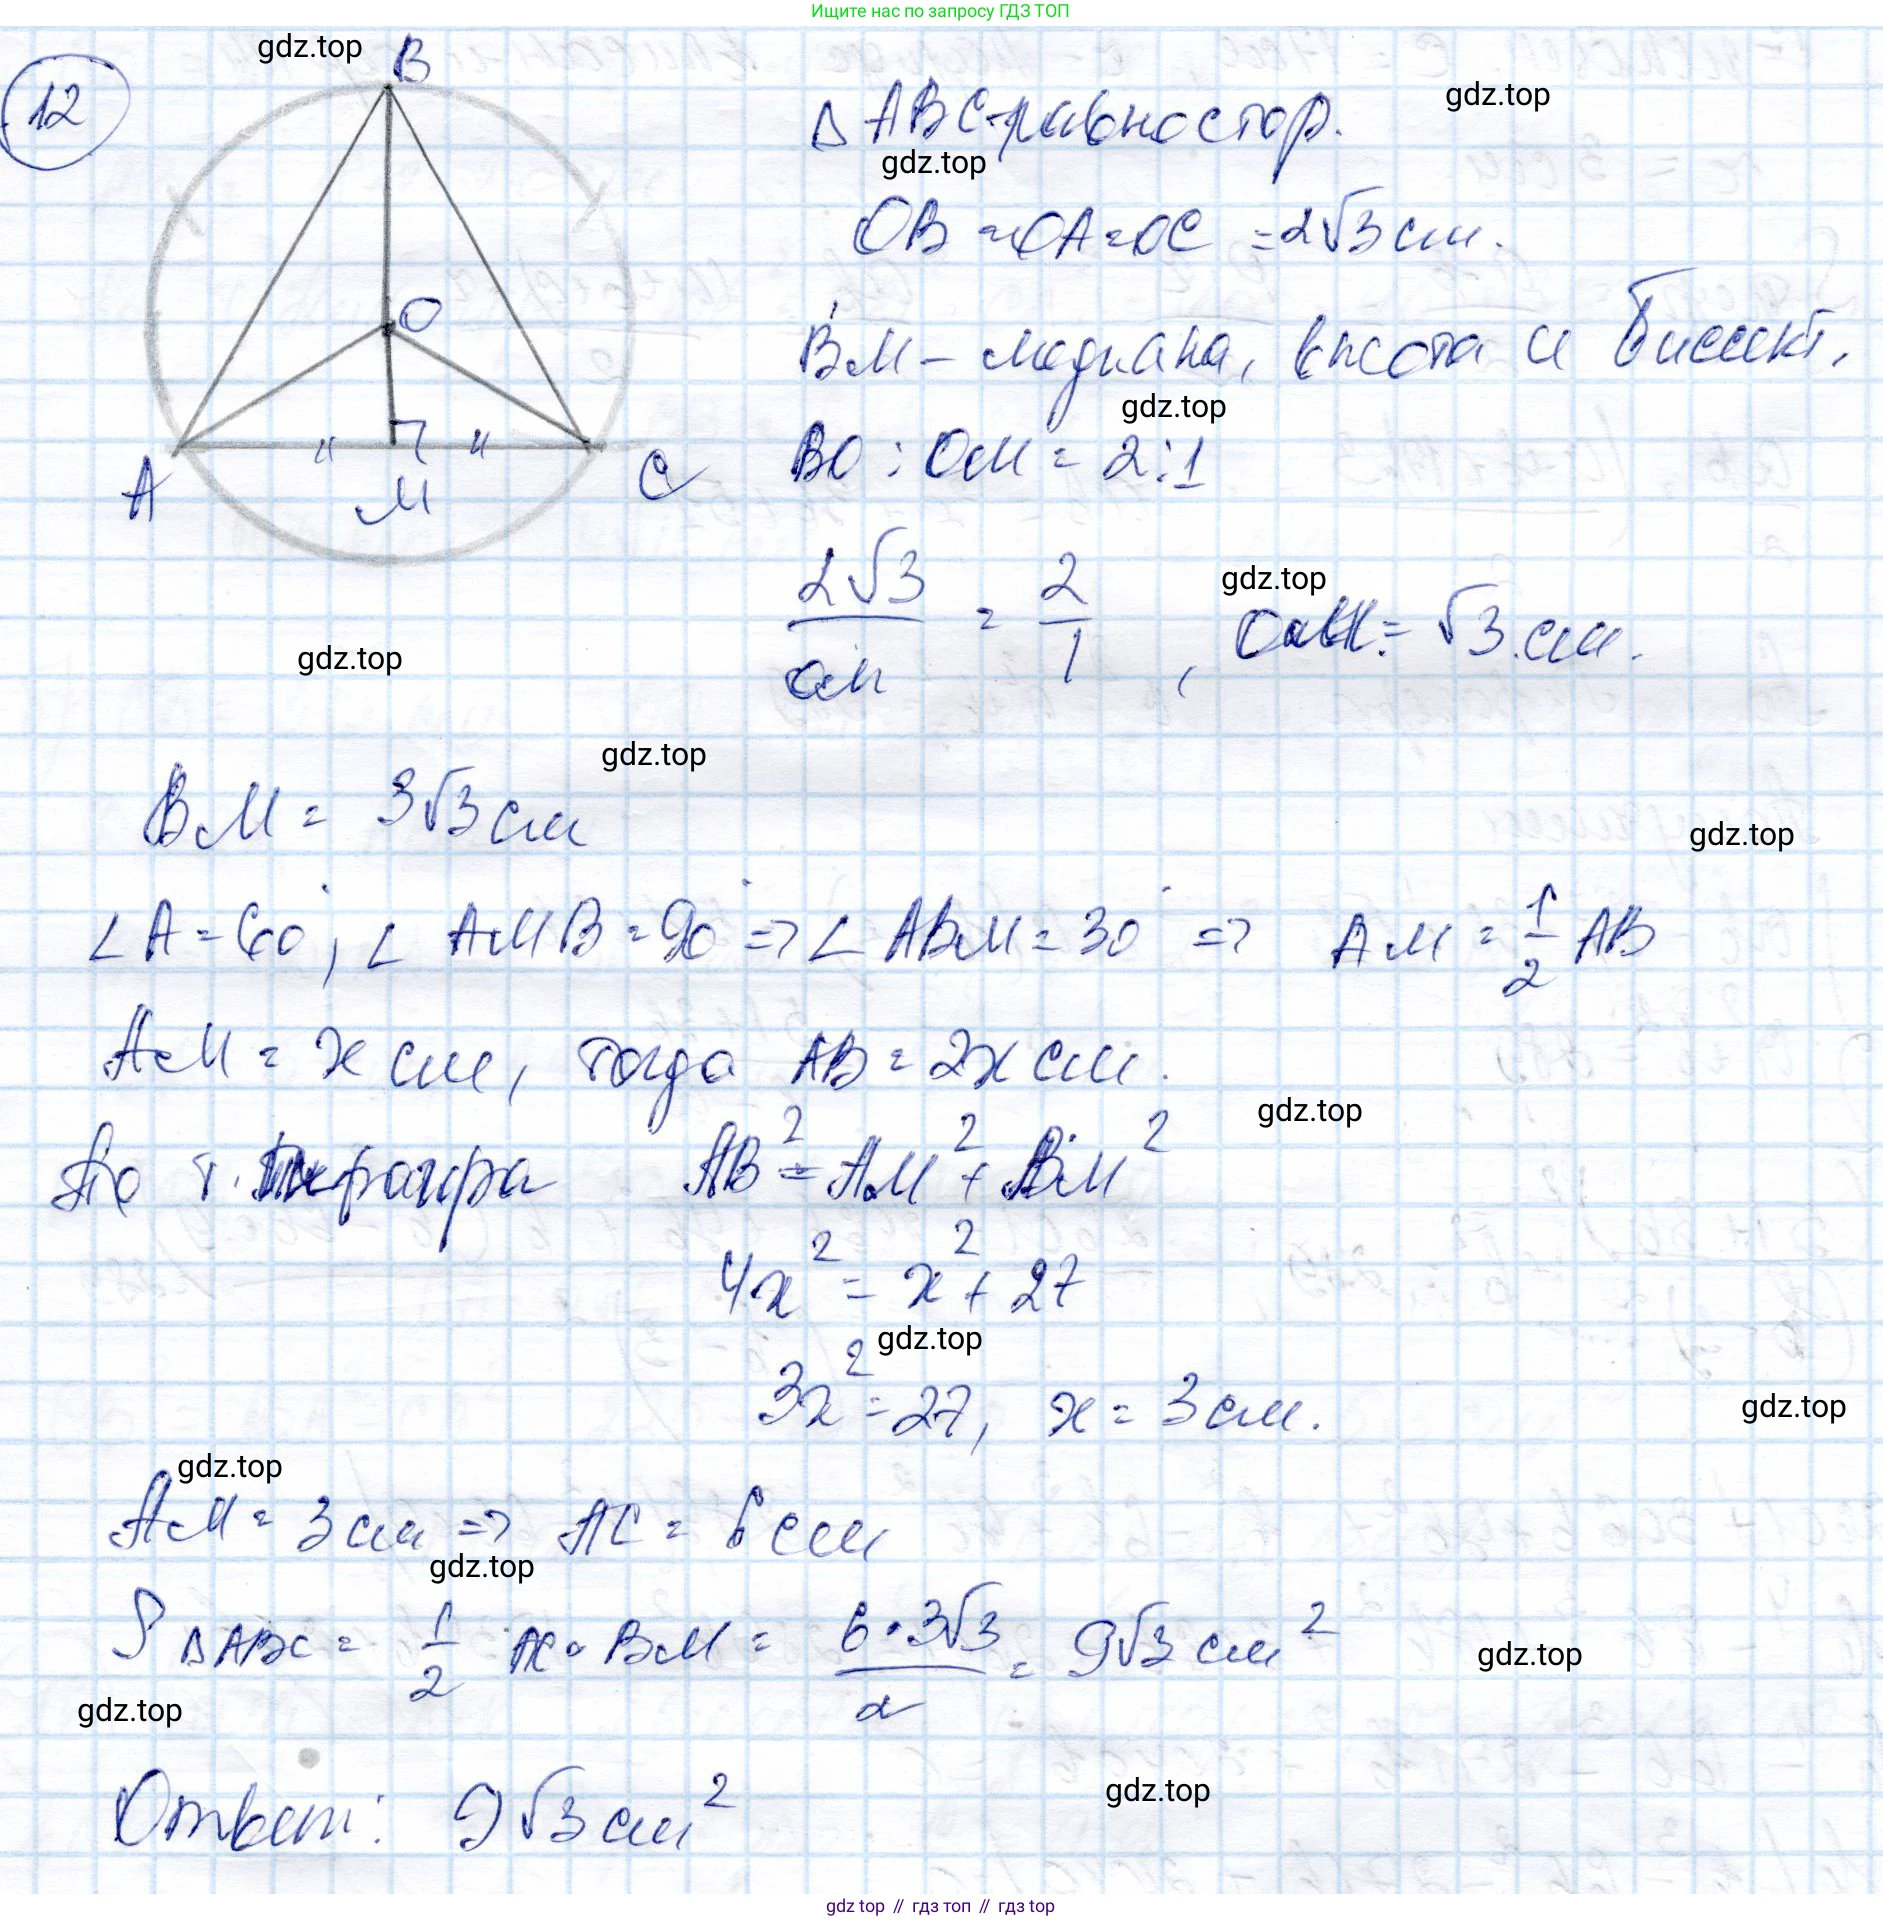 Ищите нас по запросу ГДЗ ТОП
gdz.top
12
B
O
A
M
C
Δ ABC-равностор.
gdz.top
gdz.top
OB = OA = OC = 2√3 см.
BM – медиана, высота и биссект.
gdz.top
BO : OM = 2:1
2√3/OM = 2/1, OM = √3 см.
gdz.top
gdz.top
gdz.top
BM = 3√3 см
gdz.top
∠A = 60°, ∠AMB = 90° => ∠ABM = 30° => AM = 1/2 AB
AM = x см, тогда AB = 2x см.
gdz.top
По т. Пифагора AB² = AM² + BM²
4x² = x² + 27
gdz.top
3x² = 27, x = 3 см.
gdz.top
gdz.top
AM = 3 см => AC = 6 см
gdz.top
S ΔABC = 1/2 AC · BM = 6·3√3/2 = 9√3 см²
gdz.top
gdz.top
Ответ: 9√3 см²
gdz.top
gdz top // гдз топ // гдз top